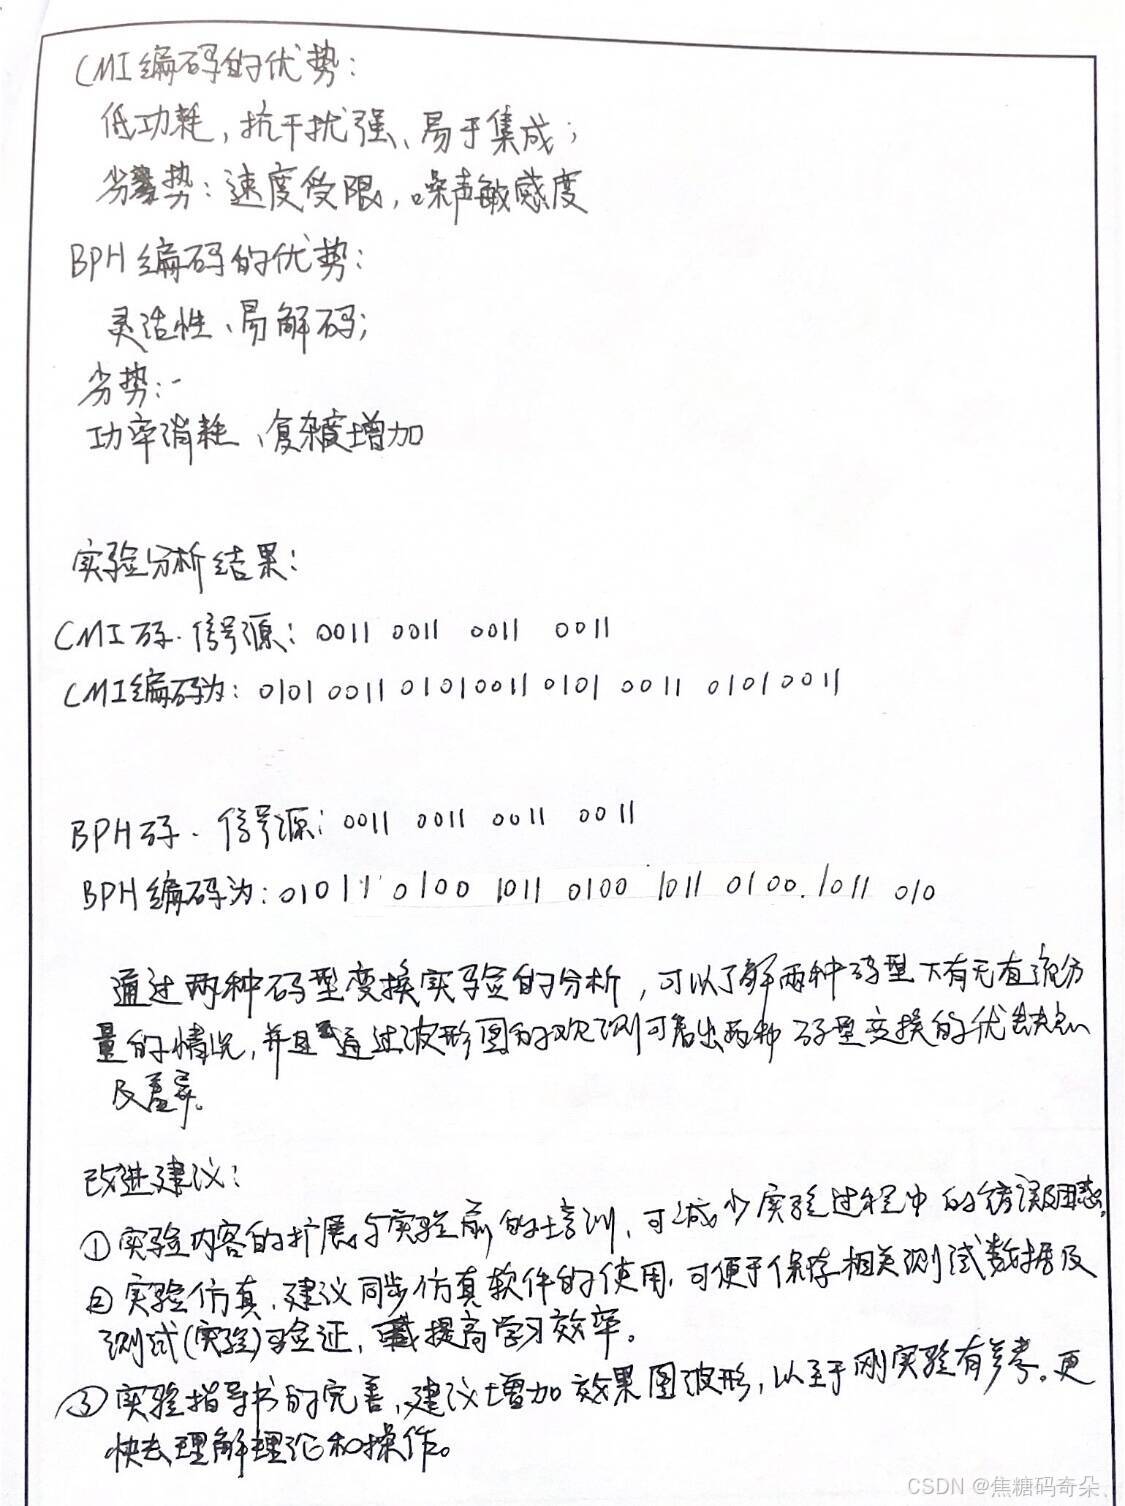 CMI编码的优势：
低功耗，抗干扰强、易于集成；
劣势：速度受限，噪声敏感度
BPH编码的优势：
灵活性、易解码；
劣势：
功率消耗、复杂度增加
实验分析结果：
CMI码．信号源：0011 0011 0011 0011
CMI编码为：0101 0011 0101 0011 0101 0011 0101 0011
BPH码．信号源：0011 0011 0011 0011
BPH编码为：01011 0100 1011 0100 1011 0100．1011 010
通过两种码型变换实验的分析，可以了解两种码型下有无直流分
量的情况，并且通过波形图的观测可看出两种码型变换的优缺点
及差异。
改进建议：
①实验内容的扩展与实验前的培训，可减少实验过程中的错误及困惑。
②实验仿真，建议同步仿真软件的使用，可便于保存相关测试数据及
测试(实验)验证，提高学习效率。
③实验指导书的完善，建议增加效果图波形，以至于刚实验有参考。更
快去理解理论和操作。
CSDN @焦糖码奇朵、